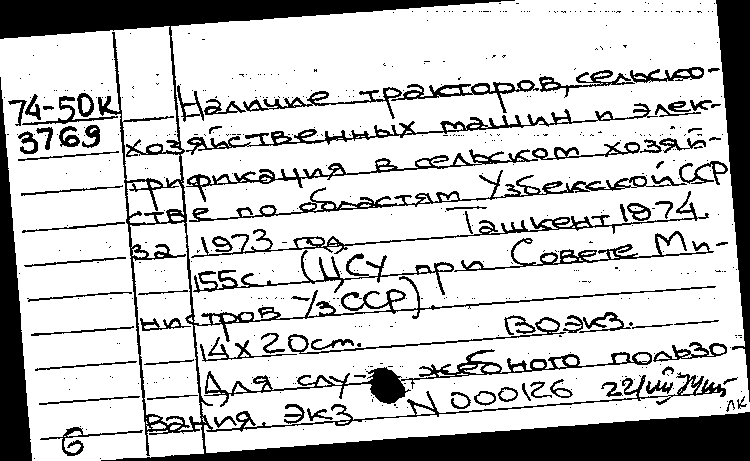 74-50к
3769
Наличие тракторов, сельско-
хозяйственных машин и элек-
трификация в сельском хозяй-
стве по областям Узбекской ССР
за 1973 год. Ташкент, 1974.
155с. (ЦСУ при Совете Ми-
нистров УзССР).
14х20см. 130 экз.
Для служебного пользо-
вания. Экз. N 000126
ЛК
6